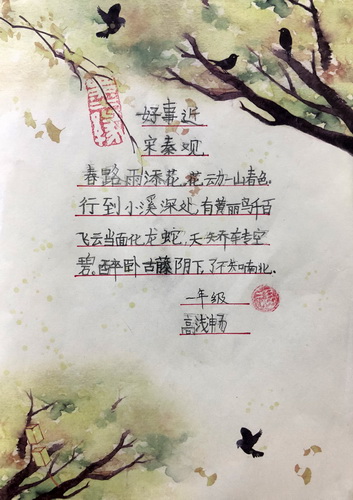 好事近
宋秦观
春路雨添花,花动一山春色,
行到小溪深处,有黄丽鸟千百
飞云当面化龙蛇,夭矫转空
碧,醉卧古藤阴下,了不知南北.
一年级
高浅畅